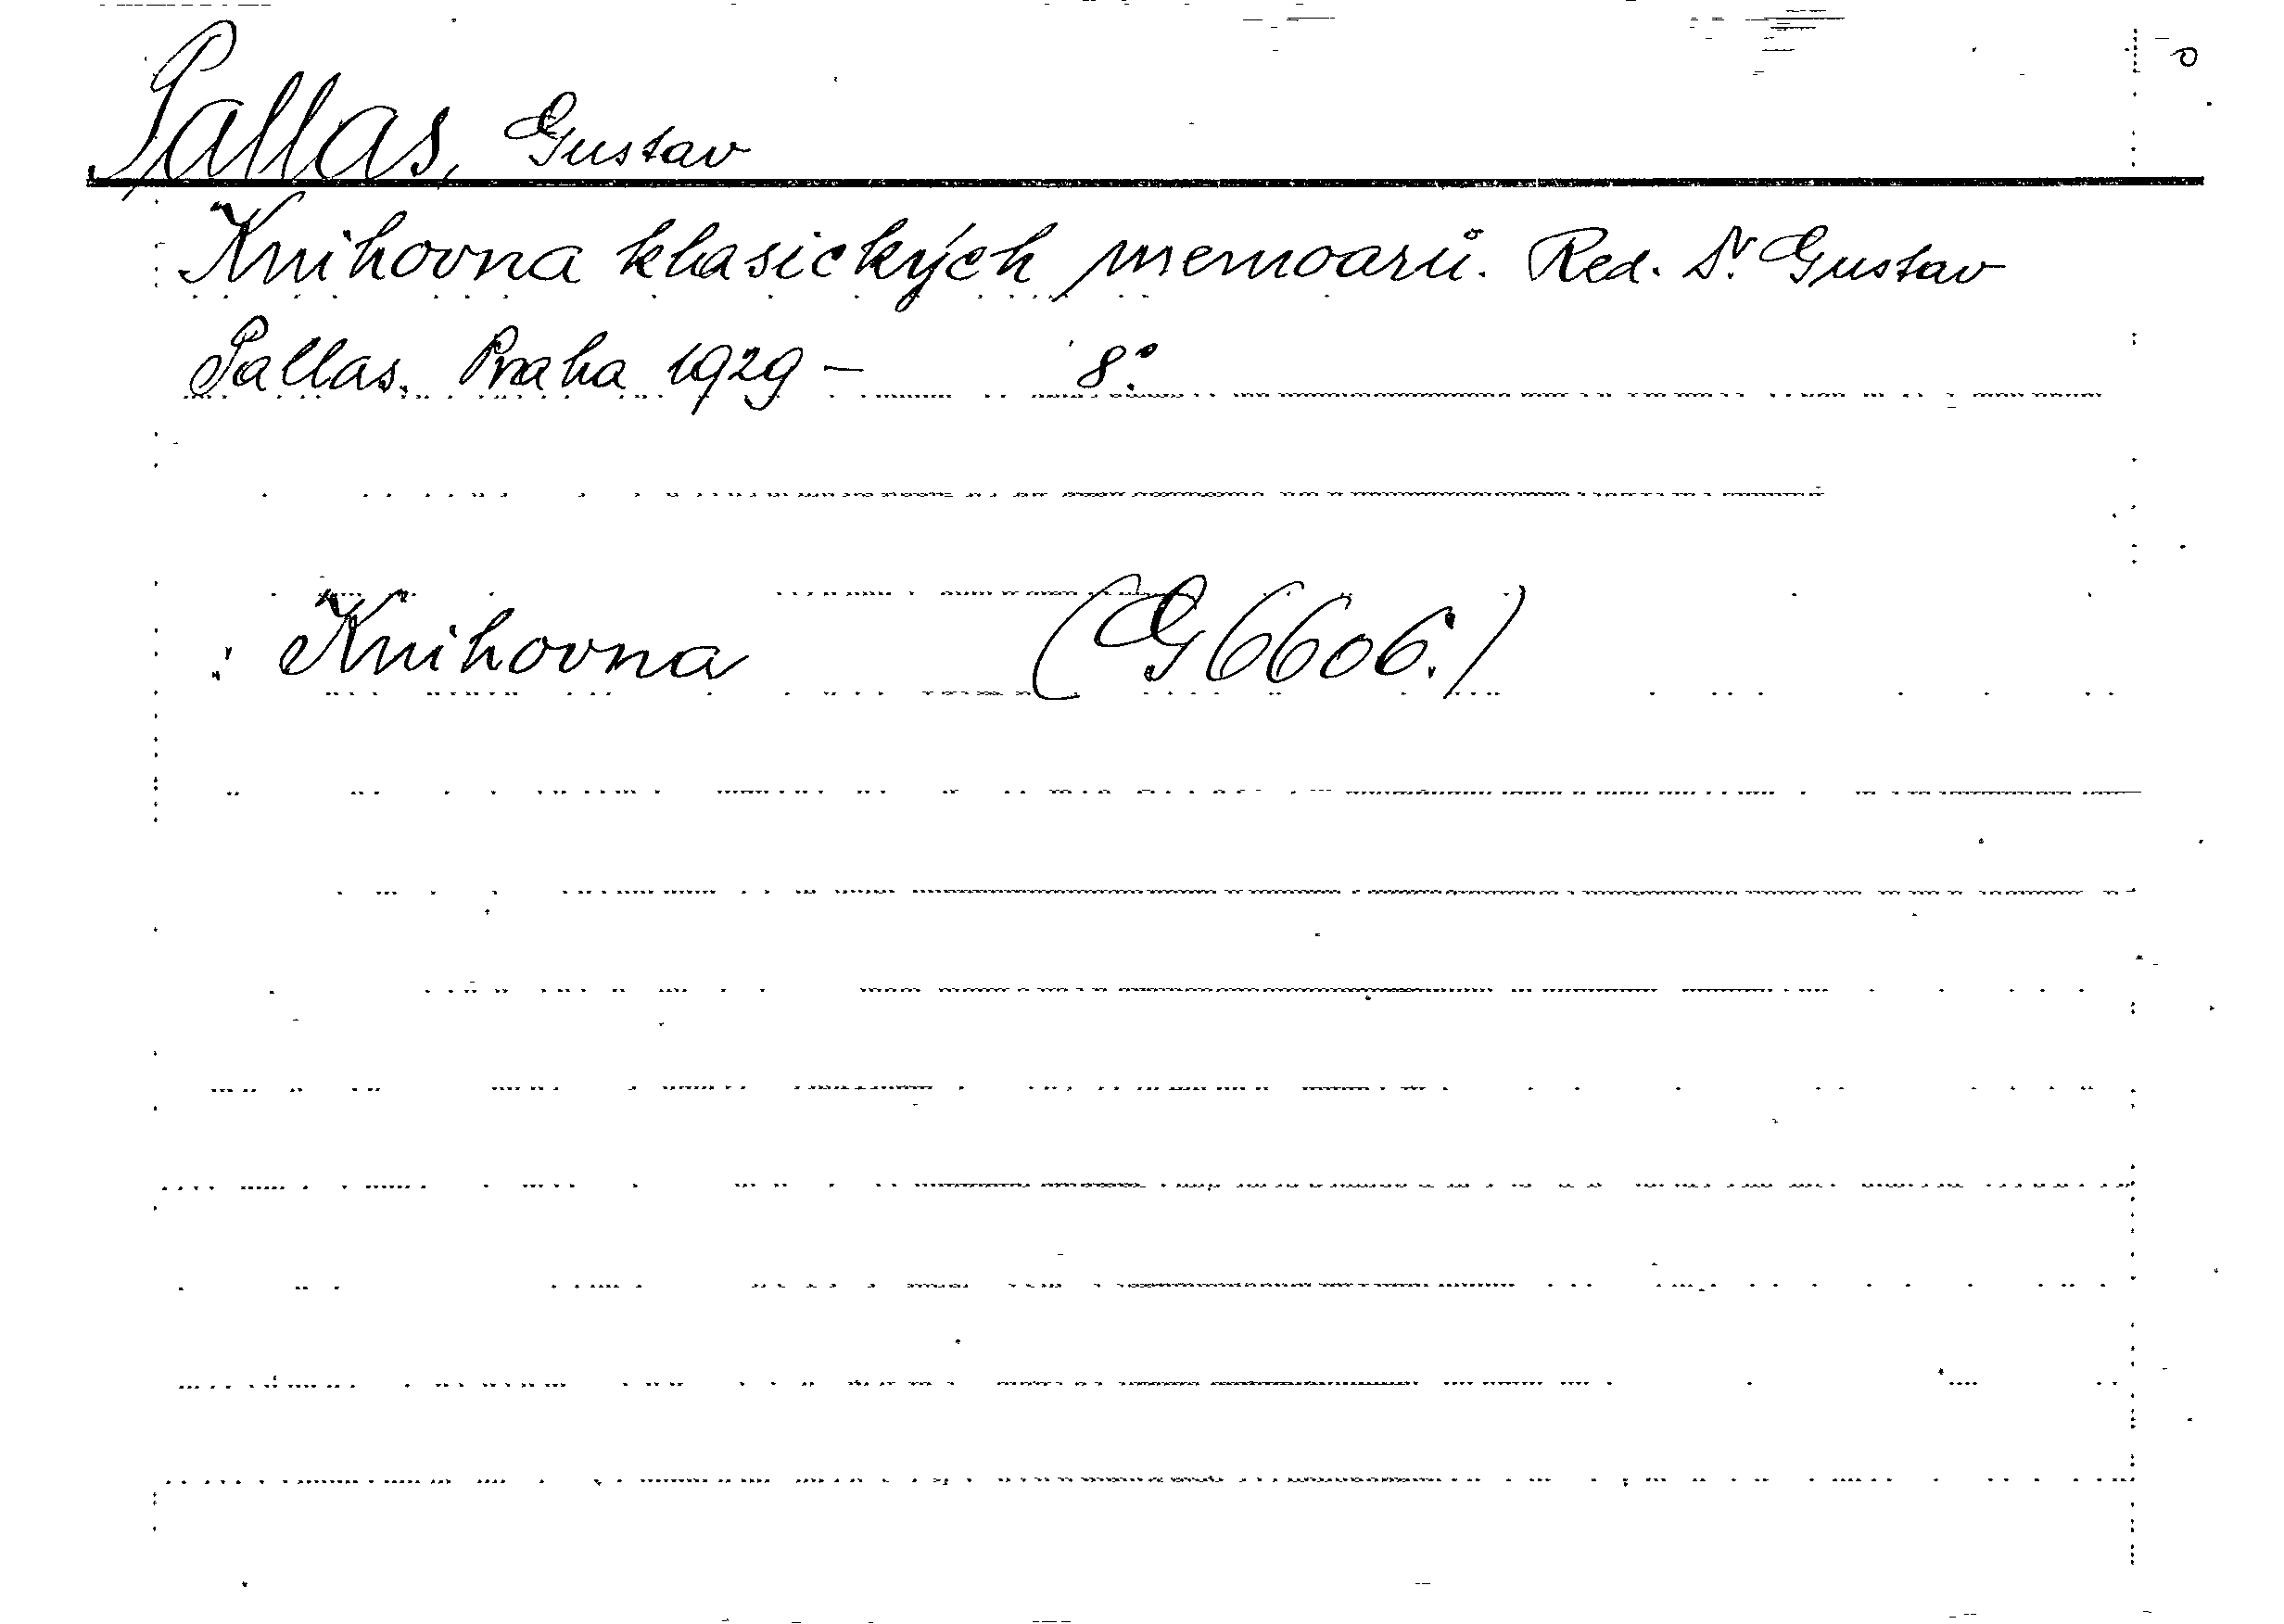 Pallas, Gustav
Knihovna klasických memoarů. Red. Dr. Gustav
Pallas. Praha 1929 – 8.°
: Knihovna (G 6606.)